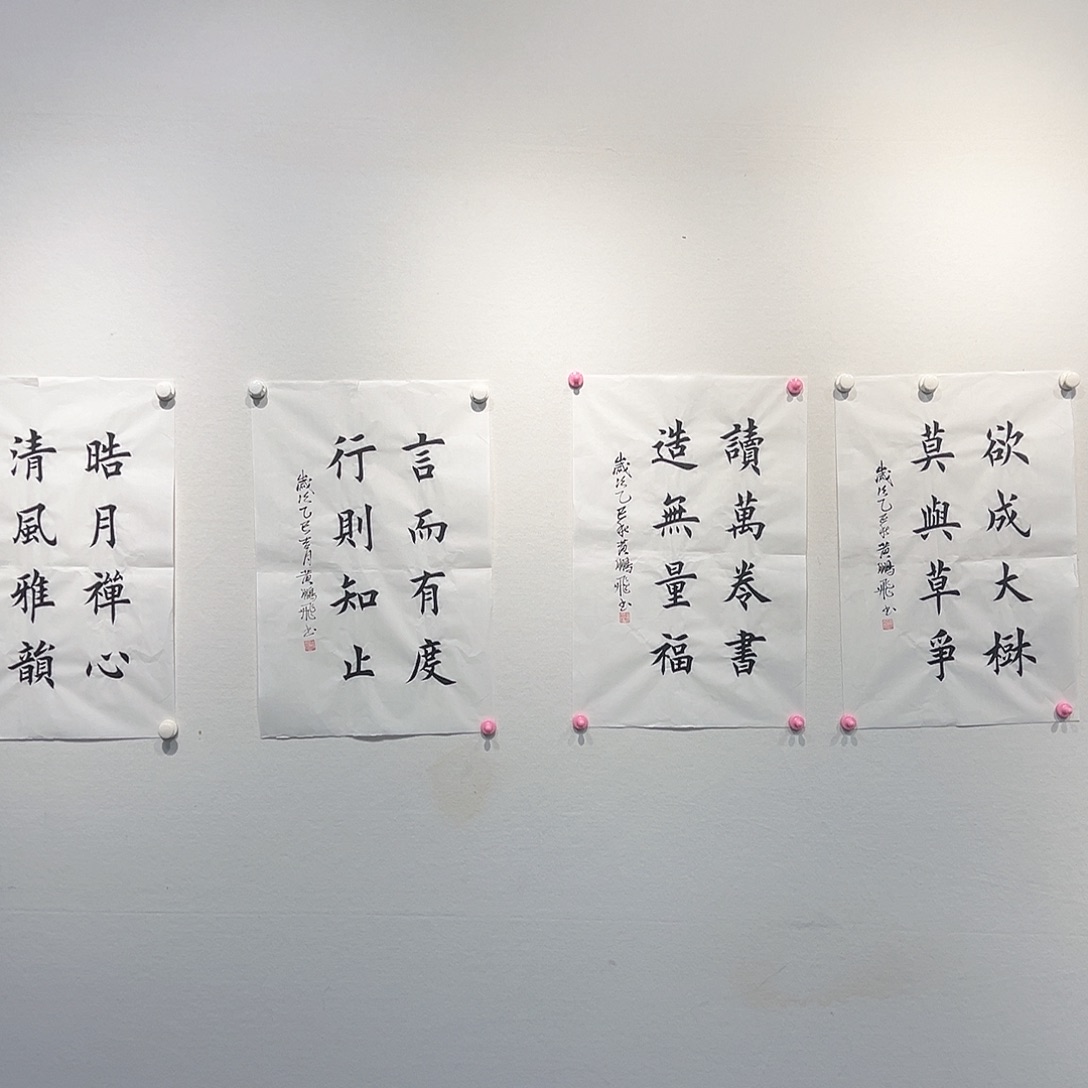 欲成大樹
莫與草爭
歲次乙巳秋黄鵬飛書
讀萬卷書
造無量福
歲次乙巳秋黄鵬飛書
言而有度
行則知止
歲次乙巳吉月黄鵬飛書
皓月禪心
清風雅韻